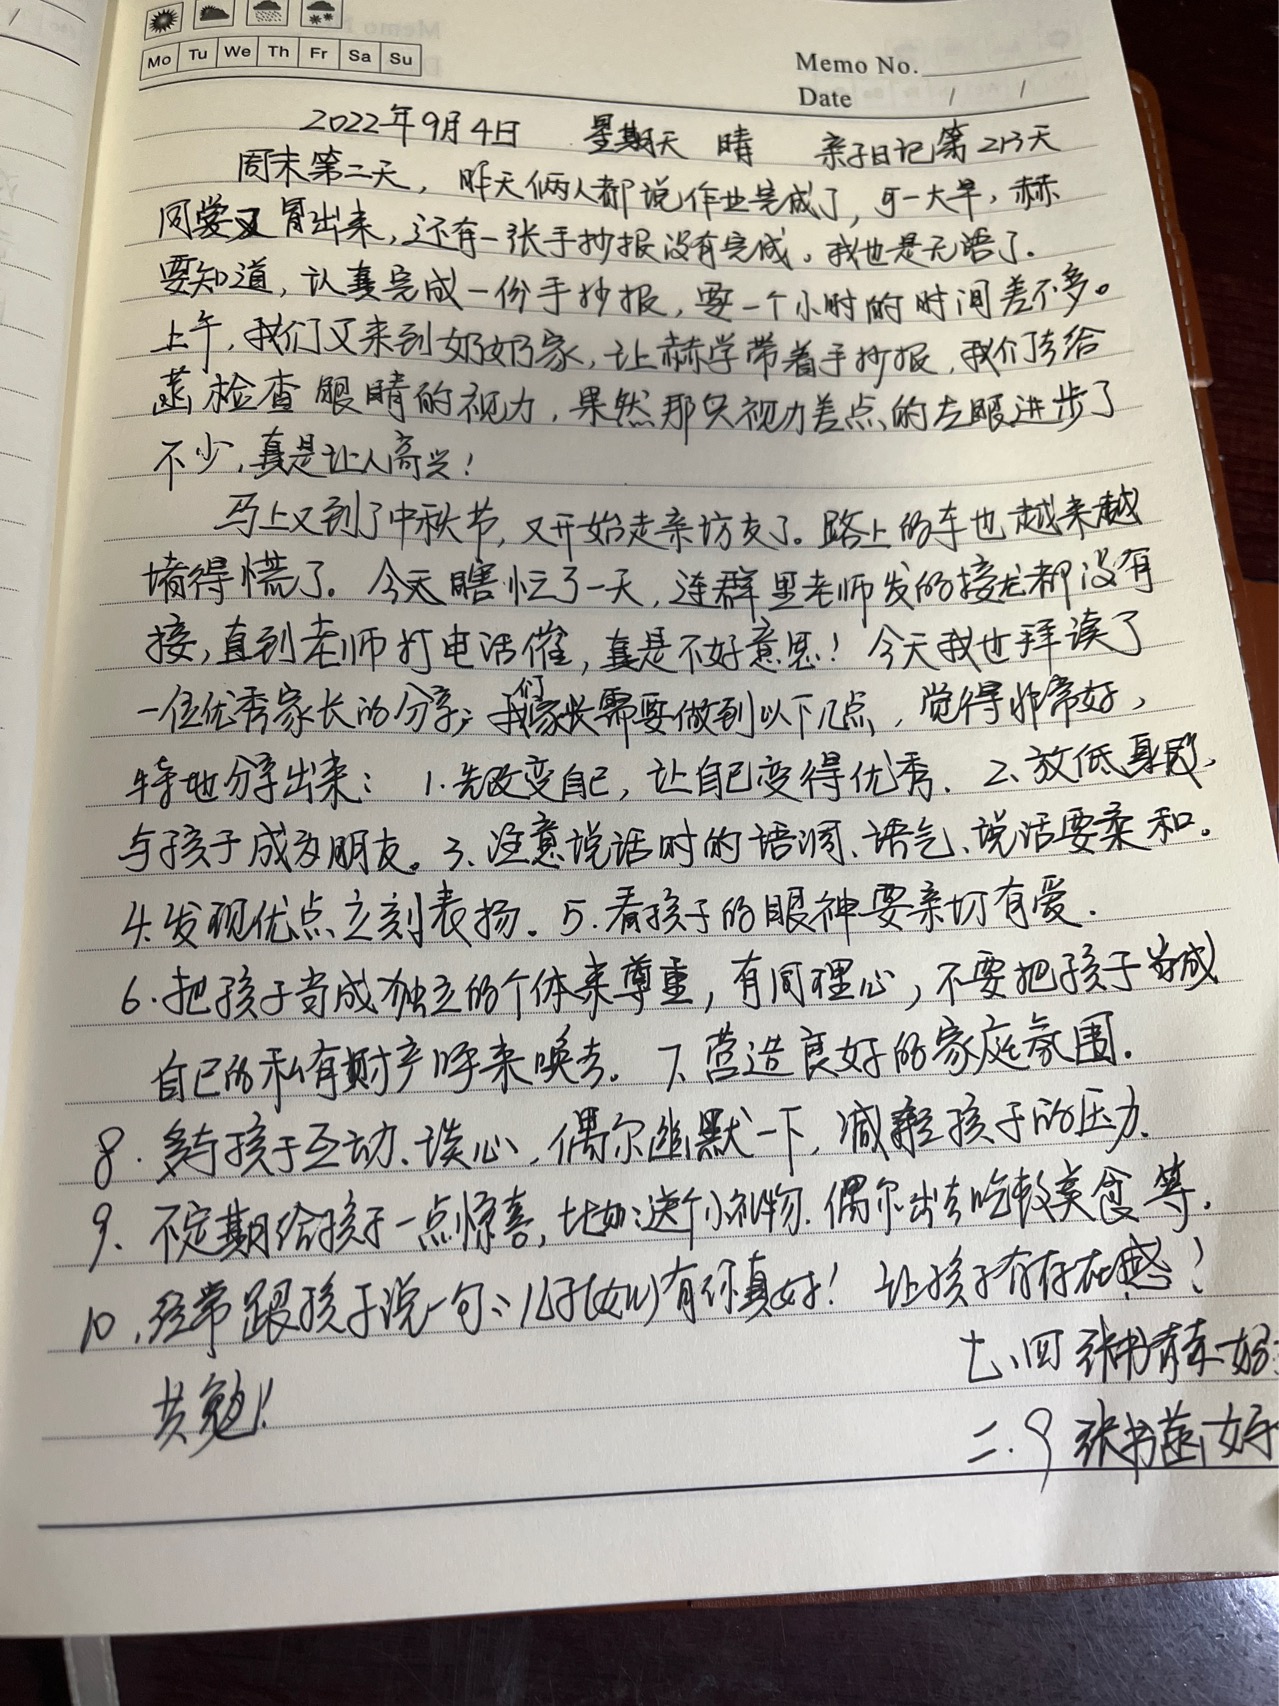 Mo Tu We Th Fr Sa Su
Memo No.
Date / /
2022年9月4日 星期天 晴 亲子日记第213天
周末第二天，昨天俩人都说作业完成了，一大早，赫
同学又冒出来，还有一张手抄报没有完成。我也是无语了.
要知道，认真完成一份手抄报，要一个小时的时间差不多。
上午，我们又来到奶奶家，让赫学带着手抄报，我们去给
菡检查眼睛的视力，果然那只视力差点的左眼进步了
不少，真是让人高兴！
马上又到了中秋节，又开始走亲访友了。路上的车也越来越
堵得慌了。今天瞎忙了一天，连群里老师发的接龙都没有
接，直到老师打电话催，真是不好意思！今天我也拜读了
一位优秀家长的分享；我们家长需要做到以下几点，觉得非常好，
特地分享出来：1.先改变自己，让自己变得优秀. 2、放低身段，
与孩子成为朋友。3、注意说话时的语调、语气、说话要柔和。
4.发现优点立刻表扬。5.看孩子的眼神要亲切有爱.
6.把孩子当成独立的个体来尊重，有同理心，不要把孩子当成
自己的私有财产呼来唤去。7、营造良好的家庭氛围.
8.多与孩子互动、谈心，偶尔幽默一下，减轻孩子的压力.
9、不定期给孩子一点惊喜，比如：送个小礼物.偶尔出去吃顿美食等.
10.经常跟孩子说一句：儿子(女儿)有你真好！让孩子有存在感！
共勉！
七、四 张书赫
二.9 张书菡